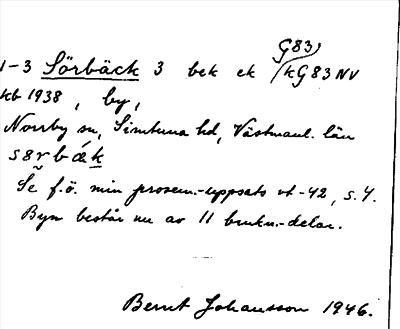 G83)
1-3 Sörbäck 3 bek ek /kG83NV
kb 1938, by,
Norrby sn, Simtuna hd, Västmanl. län
sørbǽk
Se f.ö. min prosem.-uppsats vt-42, s. 4.
Byn består nu av 11 brukn.-delar.
Bernt Johansson 1946.